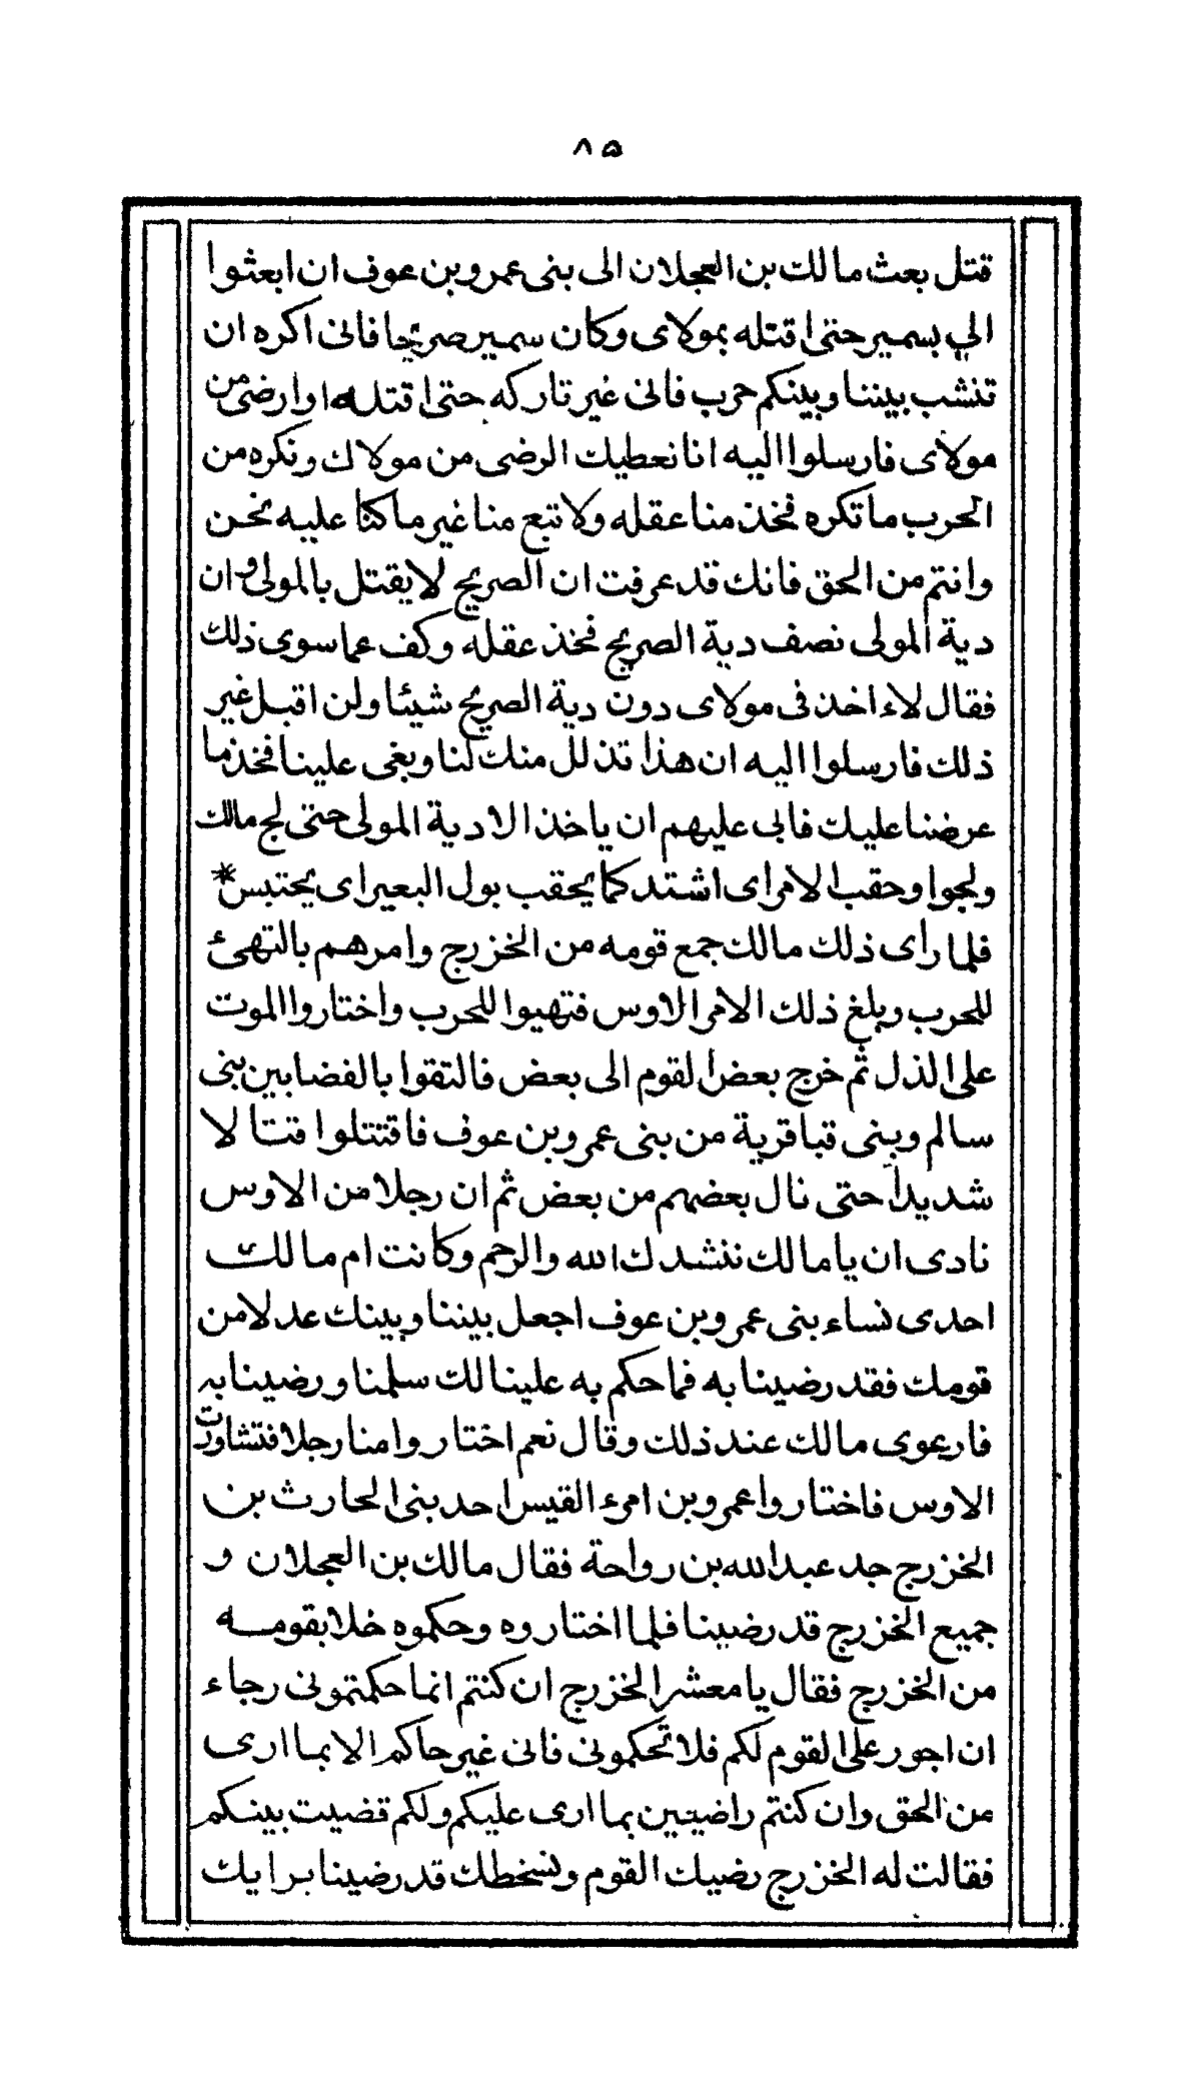 ٨٥
قتل بعث مالك بن العجلان الى بنى عمرو بن عوف ان ابعثوا
الي بسمير حتى اقتله بمولاى وكان سمير صريحا فانى اكره ان
تنشب بيننا وبينكم حرب فانى غير تاركه حتى اقتله او ارضى من
مولاى فارسلوا اليه انا نعطيك الرضى من مولاك ونكره من
الحرب ما تكره فخذ منا عقله ولا تبع منا غير ما كنا عليه نحن
وانتم من الحق فانك قد عرفت ان الصريح لا يقتل بالمولى وان
دية المولى نصف دية الصريح فخذ عقله وكف عما سوى ذلك
فقال لاءاخذ فى مولاى دون دية الصريح شيئا ولن اقبل غير
ذلك فارسلوا اليه ان هذا تذلل منك لنا وبغى علينا فخذ ما
عرضنا عليك فابى عليهم ان ياخذ الا دية المولى حتى لج مالك
ولجوا وحقب الامر اى اشتد كما يحقب بول البعير اى يحتبس *
فلما رأى ذلك مالك جمع قومه من الخزرج وامرهم بالتهئ
للحرب وبلغ ذلك الامر الاوس فتهيوا للحرب واختاروا الموت
على الذل ثم خرج بعض القوم الى بعض فالتقوا بالفضا بين بنى
سالم وبنى قبا قرية من بنى عمرو بن عوف فاقتتلوا قتالا
شديدا حتى نال بعضهم من بعض ثم ان رجلا من الاوس
نادى ان يا مالك ننشدك الله والرحم وكانت ام مالك
احدى نساء بنى عمرو بن عوف اجعل بيننا وبينك عدلا من
قومك فقد رضينا به فما حكم به علينا لك سلمنا ورضينا به
فارعوى مالك عند ذلك وقال نعم اختاروا منا رجلا فتشاورت
الاوس فاختاروا عمرو بن امرء القيس احد بنى الحارث بن
الخزرج جد عبد الله بن رواحة فقال مالك بن العجلان و
جميع الخزرج قد رضينا فلما اختاروه وحكموه خلا بقومه
من الخزرج فقال يا معشر الخزرج ان كنتم انما حكمتمونى رجاء
ان اجور على القوم لكم فلا تحكمونى فانى غير حاكم الا بما ارى
من الحق وان كنتم راضيين بما ارى عليكم ولكم قضيت بينكم
فقالت له الخزرج رضيك القوم ونسخطك قد رضينا برايك